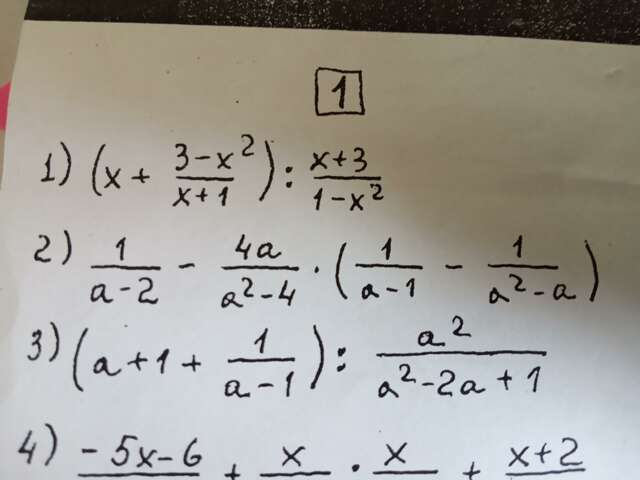 1
1) (x + (3-x²)/(x+1)) : (x+3)/(1-x²)
2) 1/(a-2) - 4a/(a²-4) · (1/(a-1) - 1/(a²-a))
3) (a+1+ 1/(a-1)) : a²/(a²-2a+1)
4) -5x-6 + x · x + x+2